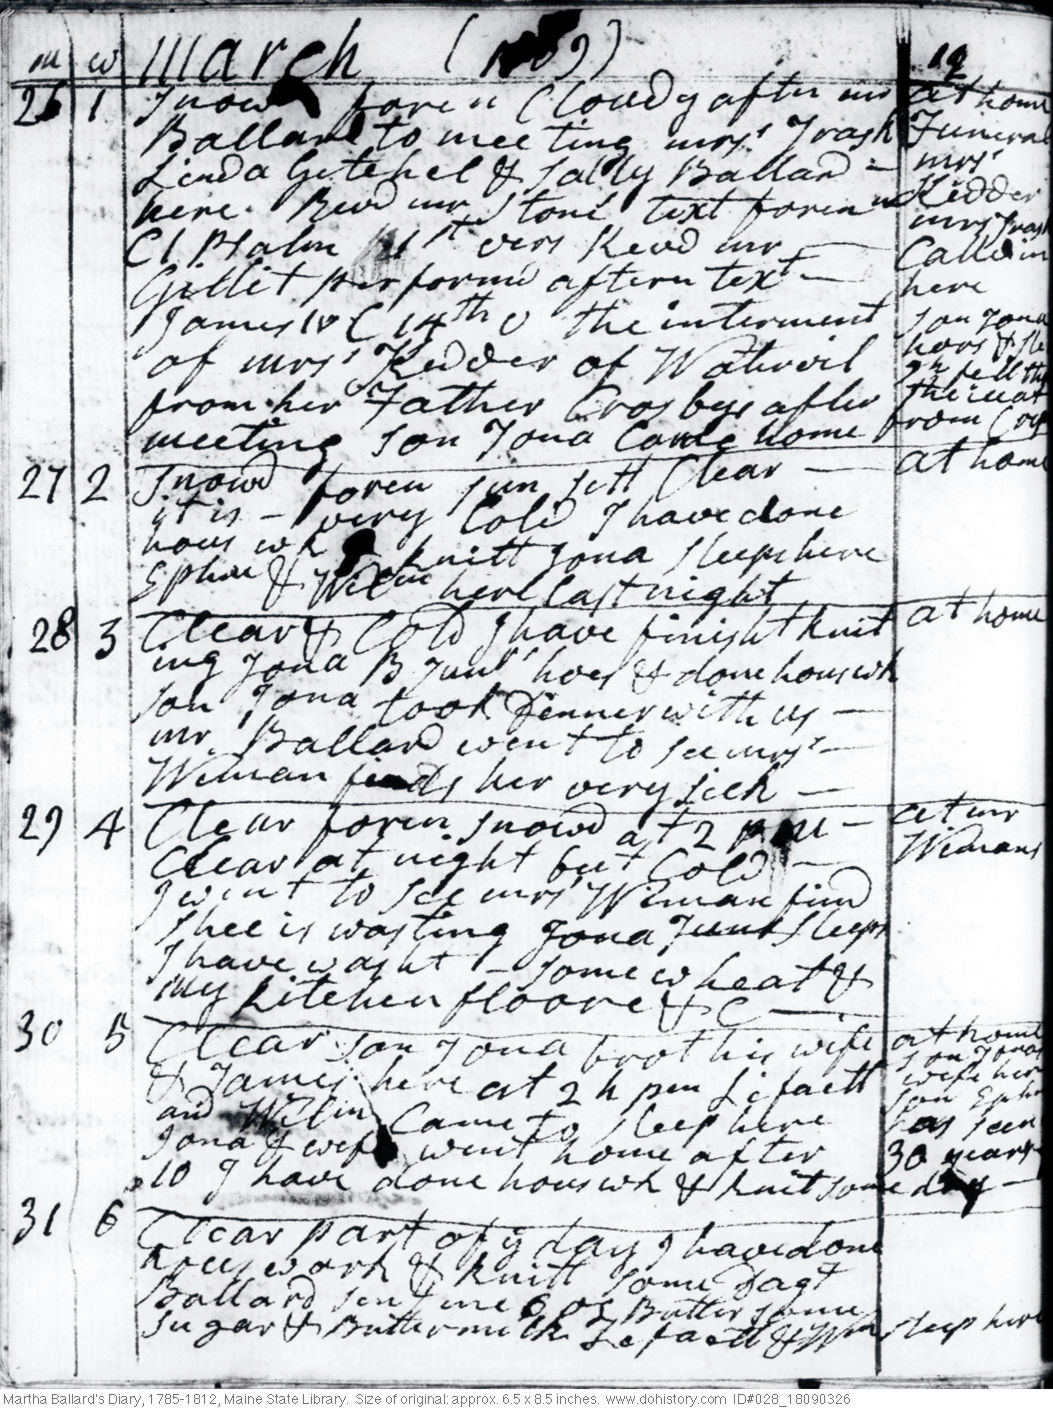 m w March (1809) 12
26 1 Snow foren Cloudy aftern mr
Ballard to meeting mrs Trask
Linda Getchel & Sally Ballard –
here. Revd mr Stone text foren
CI Psalm 1st vers Revd mr –
Gillit performd aftern text –
James IV C 14th v the interment
of mrs Kidder of Watervil
from her Father Crosbys after
meeting son Jona Came home
at home
Funeral
mrs
Kidder
mrs Trask
Calld in
here
son Jona
hors & sle
gh fell thro
the
from
27 2 Snowd foren sun sett Clear –
it is – very Cold I have done
hous wk knitt Jona sleeps here
Ephm & Wilm here last night
at home
28 3 Clear & Cold I have finisht knit
ing Jona B Junr hoes & done hous wk
son Jona took Dinner with us –
mr Ballard went to see mrs –
Wiman finds her very sick –
at home
29 4 Clear foren snowd at 2 pm –
Clear at night but Cold –
I went to see mrs Wiman find
shee is wasting Jona Junr sleeps
I have washt – some wheat &
my kitchen floore & C –
at mr
Wimans
30 5 Clear son Jona brot his wife
& James here at 2 h pm Lefaett
and Wilm Came to sleep here
Jona & wife went home after
10 I have done hous wk & knit some
at home
son Jonas
wife here
son Ephm
has seen
30 years –
31 6 Clear part of ye day I have done
hous work & knitt some Dagt
Ballard sent me 6 oz Butter some
sugar & Buttermilk Lefaett & Wm sleep here
Martha Ballard's Diary, 1785-1812, Maine State Library. Size of original: approx. 6.5 x 8.5 inches. www.dohistory.com ID#028_18090326